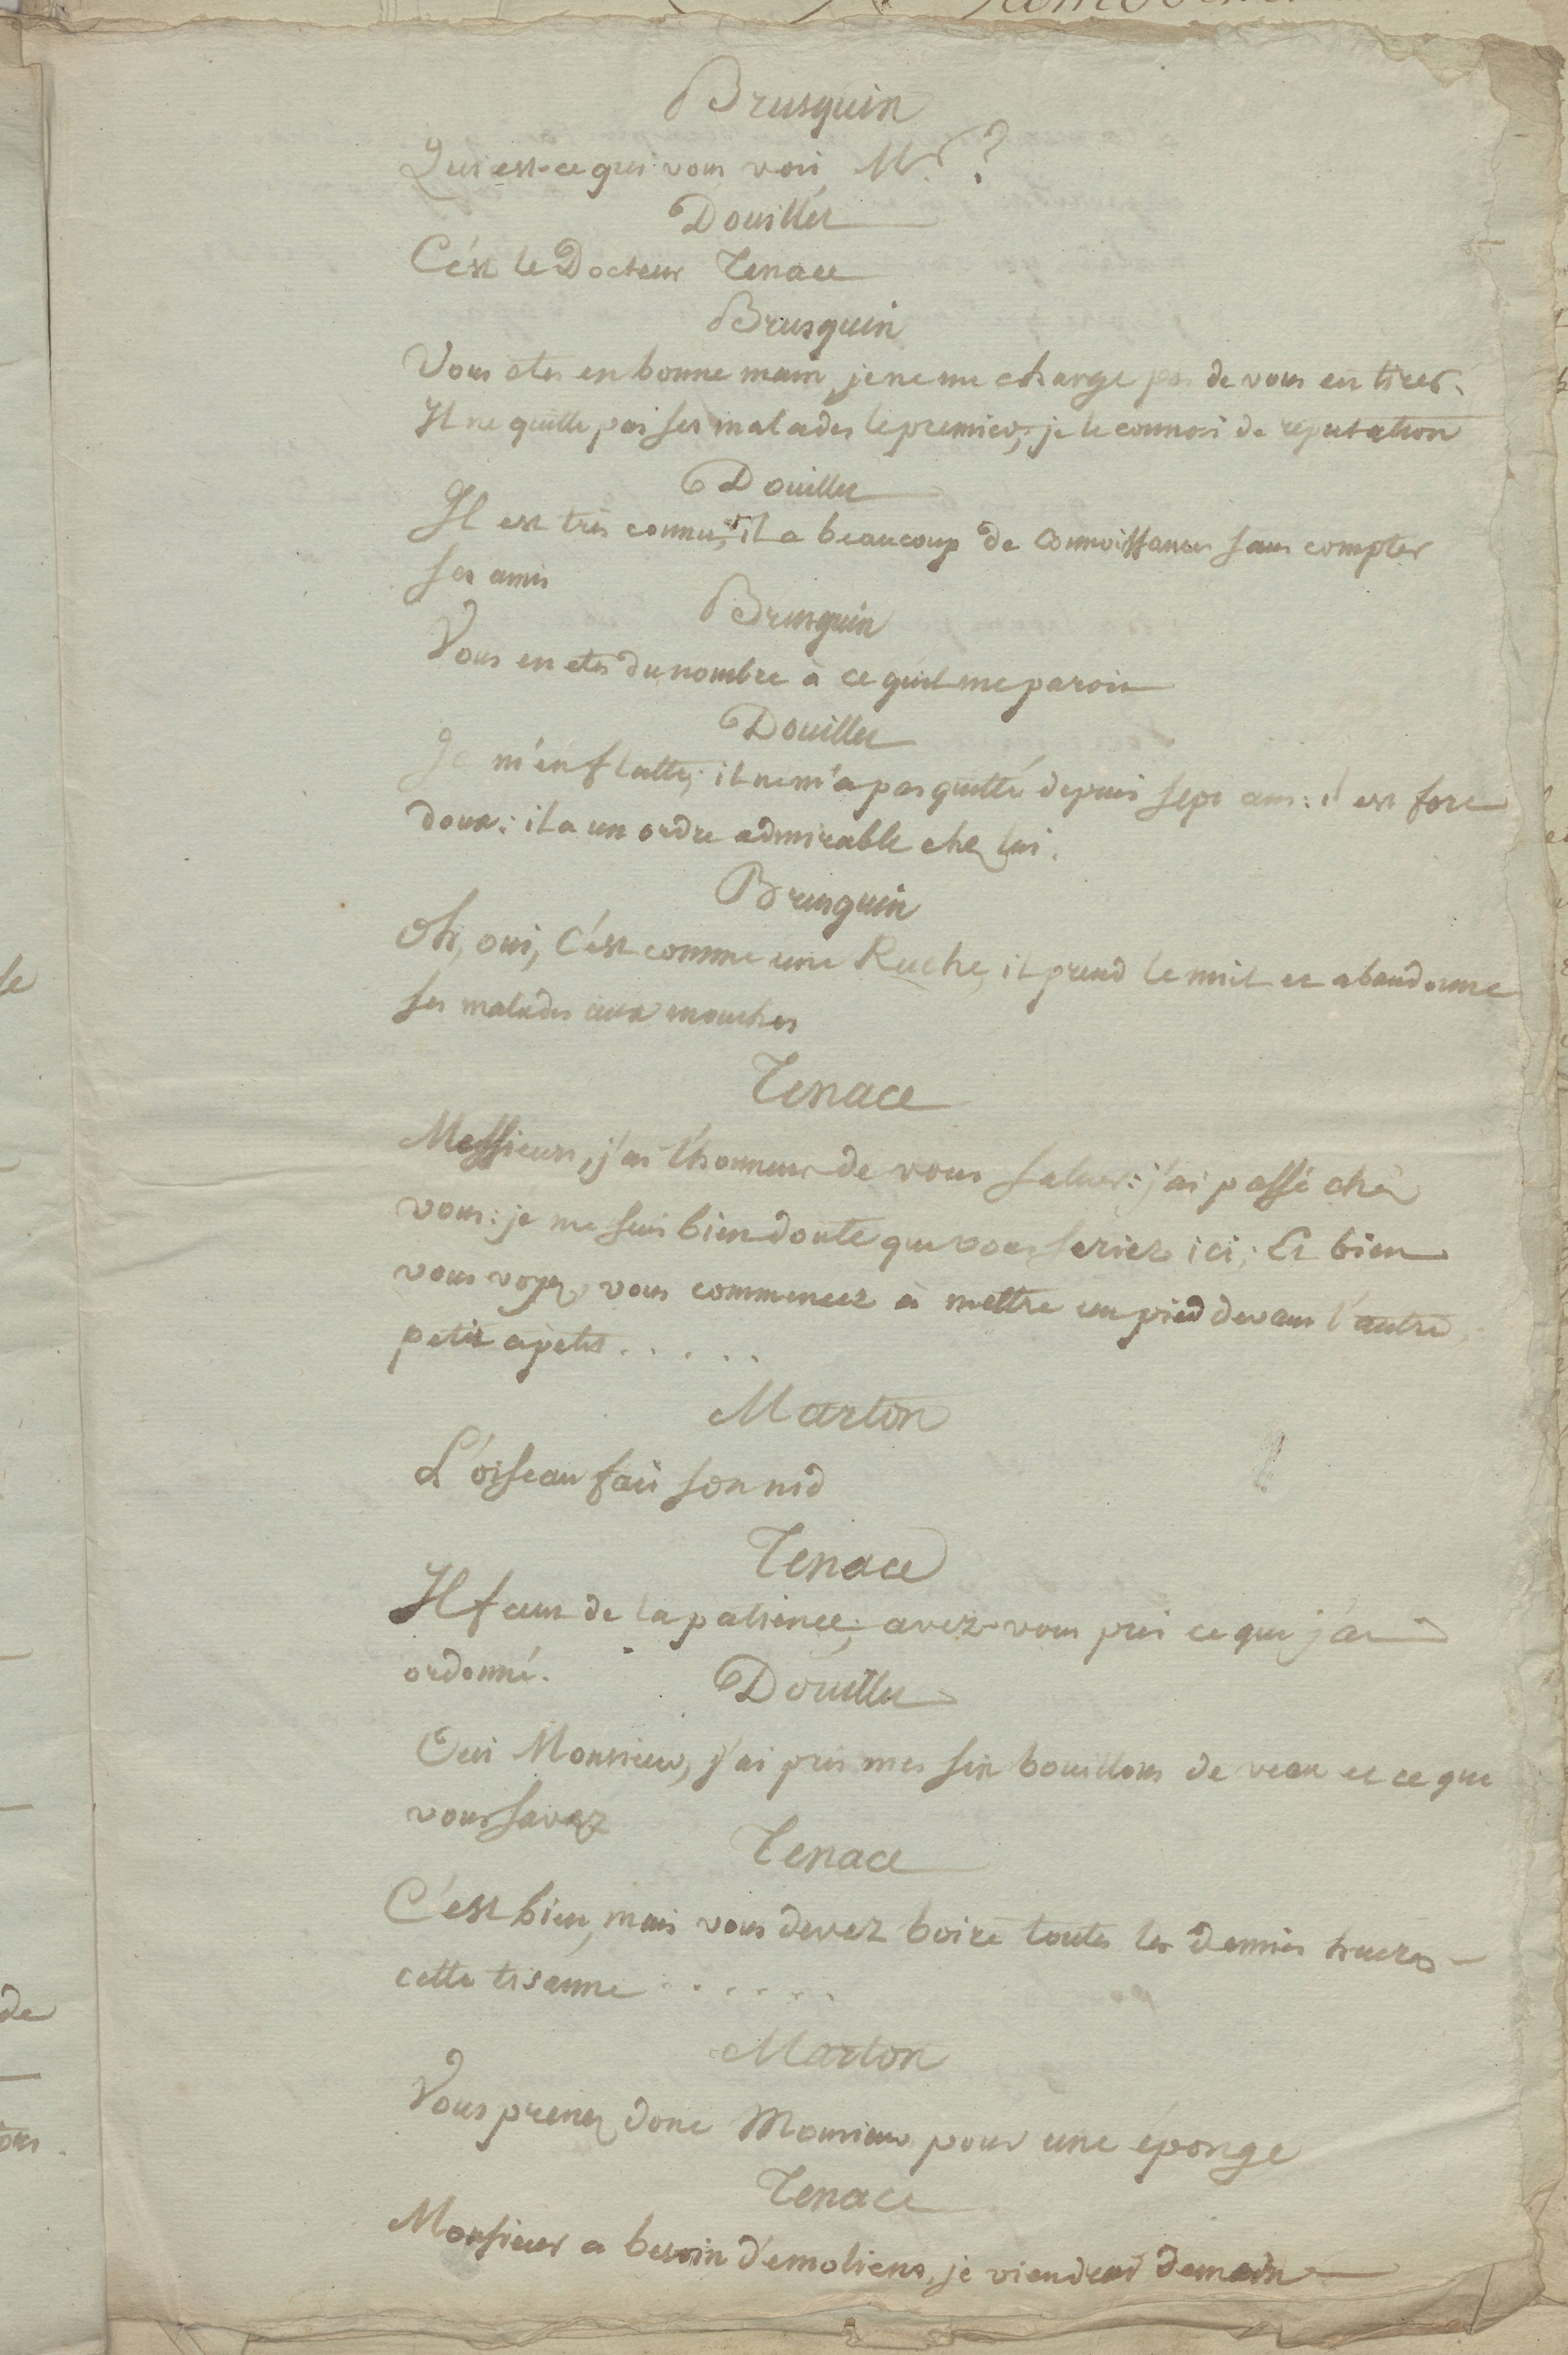 Brusquin
Qui est-ce qui vous voit Mr. ?
Douillet
C'est le Docteur Tenace
Brusquin
Vous etes en bonne main, je ne me charge pas de vous en tirer.
Il ne quitte pas ses malades le premier; je le connois de reputation
Douillet
Il est très connu, il a beaucoup de connoissances sans compter
ses amis
Brusquin
Vous en etes du nombre à ce qu'il me paroit
Douillet
Je m'en flatte; il ne m'a pas quitté depuis sept ans: il est fort
doux: il a un ordre admirable chez lui.
Brusquin
Oh, oui, c'est comme une Ruche, il prend le miel et abandonne
ses malades aux mouches
Tenace
Messieurs, j'ai l'honneur de vous saluer: j'ai passé chez
vous: je me suis bien douté que vous seriez ici; Et bien
vous voyez, vous commencez à mettre un pied devant l'autre,
petit a petit.....
Marton
L'oiseau fait son nid
Tenace
Il faut de la patience; avez-vous pris ce que j'ai
ordonné.
Douillet
Oui Monsieur, j'ai pris mes six bouillons de veau et ce que
vous savez
Tenace
C'est bien, mais vous devez boire toutes les demies heures
cette tisanne ......
Marton
Vous prenez donc Monsieur pour une éponge
Tenace
Monsieur a besoin d'emoliens, je viendrai demain